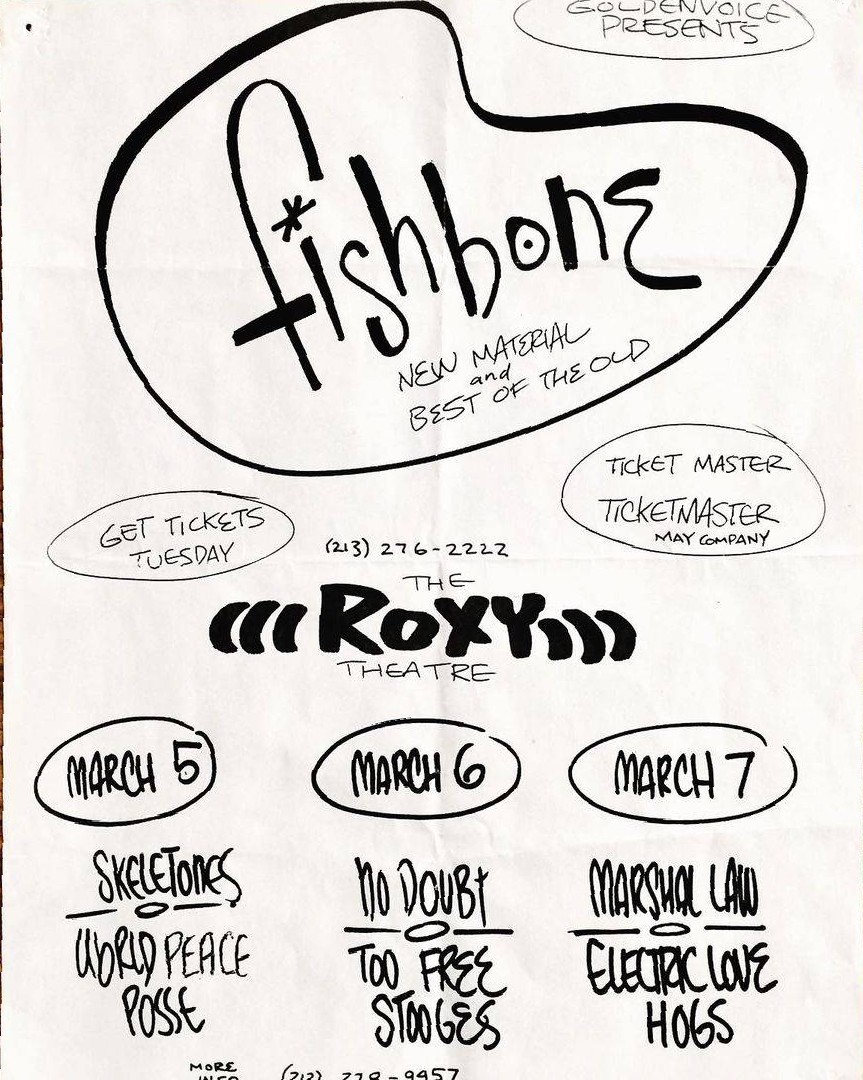 GOLDENVOICE
PRESENTS
fishbone
NEW MATERIAL
and
BEST OF THE OLD
TICKET MASTER
TICKETMASTER
MAY COMPANY
GET TICKETS
TUESDAY
(213) 276-2222
THE
ROXY
THEATRE
MARCH 5
MARCH 6
MARCH 7
SKELETONES
WORLD PEACE
POSSE
NO DOUBT
TOO FREE
STOOGES
MARSHAL LAW
ELECTRIC LOVE
HOGS
MORE
INFO
(213) 278-9457